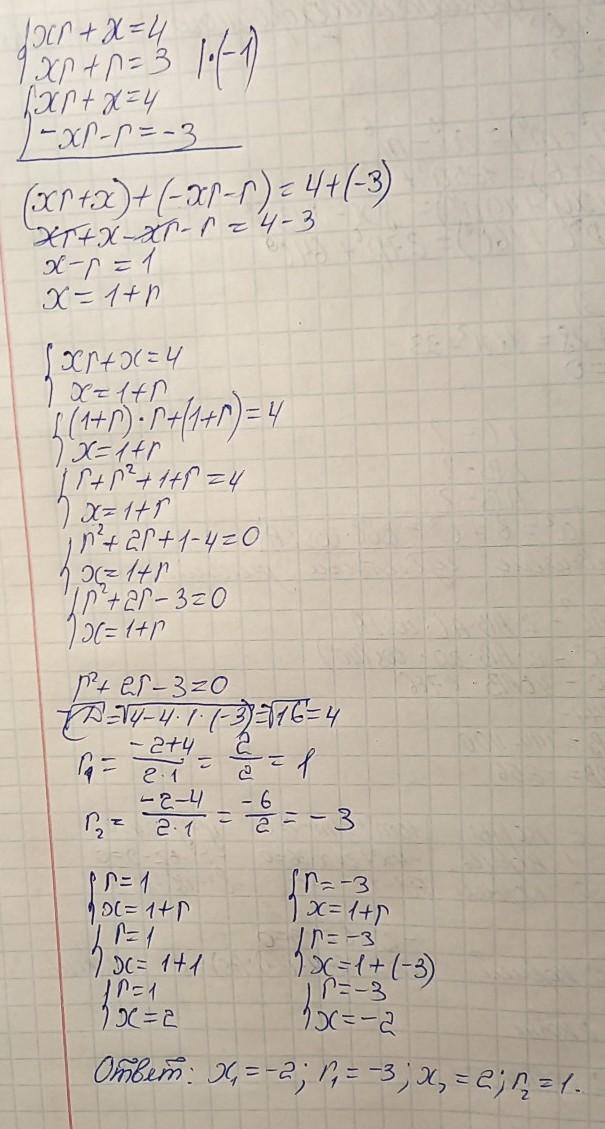 {xr + x = 4
{xr + r = 3 |·(-1)
{xr + x = 4
{-xr - r = -3
(xr + x) + (-xr - r) = 4 + (-3)
xr + x - xr - r = 4 - 3
x - r = 1
x = 1 + r
{xr + x = 4
{x = 1 + r
{(1 + r) · r + (1 + r) = 4
{x = 1 + r
{r + r² + 1 + r = 4
{x = 1 + r
{r² + 2r + 1 - 4 = 0
{x = 1 + r
{r² + 2r - 3 = 0
{x = 1 + r
r² + 2r - 3 = 0
√D = √4 - 4 · 1 · (-3) = √16 = 4
r₁ = (-2 + 4)/(2 · 1) = 2/2 = 1
r₂ = (-2 - 4)/(2 · 1) = -6/2 = -3
{r = 1 {r = -3
{x = 1 + r {x = 1 + r
{r = 1 {r = -3
{x = 1 + 1 {x = 1 + (-3)
{r = 1 {r = -3
{x = 2 {x = -2
Ответ: x₁ = -2; r₁ = -3; x₂ = 2; r₂ = 1.